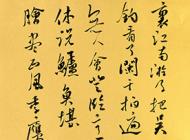 裏江南游子把吳
鉤看了闌干拍遍
無人會登臨意
休說鱸魚堪
膾盡西風季鷹